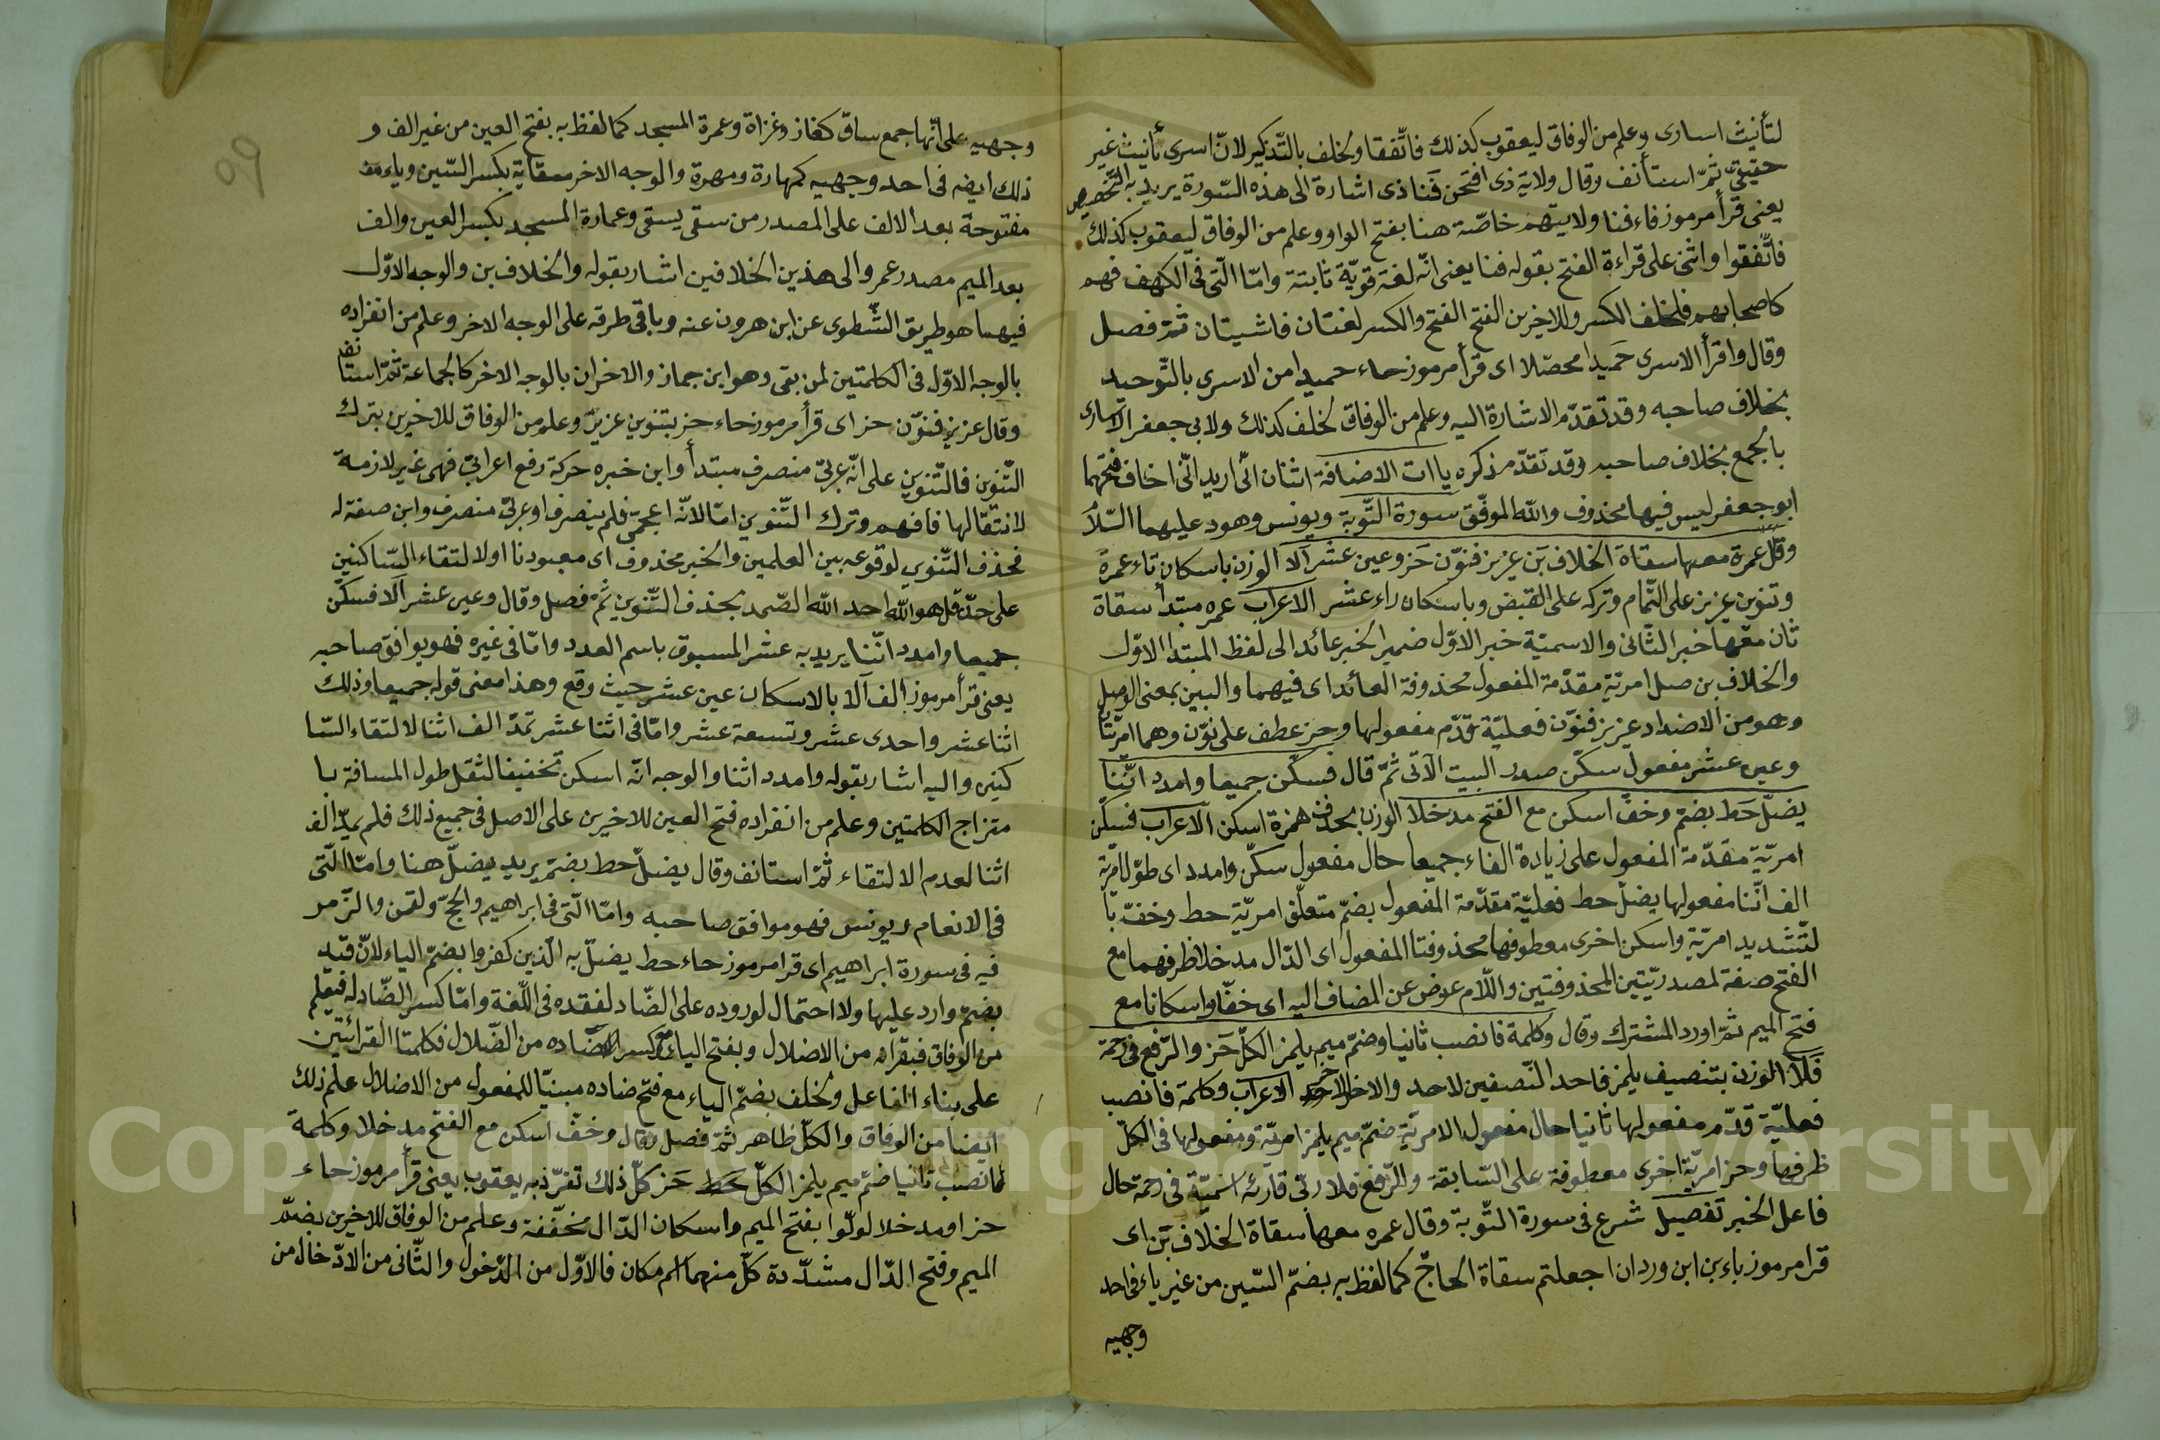 لتأنيث اسارى وعلم من الوفاق ليعقوب كذلك فاتّفقا ولخلف بالتّذكير لانّ اسرى تأنيث غير
حقيقيّ ثمّ استأنف وقال ولاية ذى افتحن فَنا ذى اشارة الى هذه السّورة يريد به التّخصيص
يعنى قرأ مرموز فاء فنا ولايتهم خاصّة هنا بفتح الواو وعلم من الوفاق ليعقوب كذلك
فاتّفقوا واثنى على قراءة الفتح بقوله فنا يعنى انّه لغة قويّة ثابتة وامّا الّتى فى الكهف فهم
كاصحابهم فلخلف الكسر وللاخيرين الفتح الفتح والكسر لغتان فاشيتان ثمّ فصل
وقال واقرأ الاسرى حَميدا محصّلا اى قرأ مرموز حاء حميدا من الاسرى بالتّوحيد
بخلاف صاحبه وقد تقدّم الاشارة اليه وعلم من الوفاق لخلف كذلك ولابى جعفر الاسارى
بالجمع بخلاف صاحبه وقد تقدّم ذكره ياات الاضافة اثنان انّى اريد انّى اخاف فتحهما
ابو جعفر ليس فيها محذوف والله الموفّق سورة التّوبة ويونس وهود عليهما السّلام
وقل عمرة معها سقاة الخلاف بَن عزيز فنوّن حَز وعين عشر الَا الوزن باسكان تاء عمرة
وتنوين عزيز على التّمام وتركه على القبض وباسكان راء عشر الاعراب عمره مبتدأ سقاة
ثان معها خبر الثّانى والاسميّة خبر الاوّل ضمير الخبر عائد الى لفظ المبتدا الاوّل
والخلاف بن صل امريّة مقدّمة المفعول محذوفة العائد اى فيهما والبين بمعنى الوصل
وهو من الاضداد عزيز فنوّن فعليّة قدّم مفعولها وحز عطف على نوّن وهما امريّتان
وعين عشر مفعول سكّن صدر البيت الآتى ثمّ قال فسكّن جميعا وامدد اثنا
يضلّ حَط بضمّ وخفّ اسكن مع الفتح مدخلا الوزن بحذف همزة اسكن الاعراب فسكّن
امريّة مقدّمة المفعول على زيادة الفاء جميعا حال مفعول سكّن وامدد اى طوّل امريّة
الف اثنا مفعولها يضلّ حط فعليّة مقدّمة المفعول بضمّ متعلّق امريّة حط وخفّ با
لتّشديد امريّة واسكن اخرى معطوفها محذوفتا المفعول اى الدّال مدخلا ظرفهما مع
الفتح صفة لمصدريّتين المحذوفتين واللّام عوض عن المضاف اليه اى خفّا واسكانا مع
فتح الميم ثمّ اورد المشترك وقال وكلمة فانصب ثانيا وضمّ ميم يلمز الكلّ حَز والرّفع فى رحمة
فَلَا الوزن بتنصيف يلمز فاحد النّصفين لاحد والاخر للاخر الاعراب وكلمة فانصب
فعليّة قدّم مفعولها ثانيا حال مفعول الامريّة ضمّ ميم يلمز امريّة ومفعولها فى الكلّ
ظرفها وحز امريّة اخرى معطوفة على السّابقة والرّفع فلا ربّى قارئه اسميّة فى رحمة حال
فاعل الخبر تفصيل شرع فى سورة التّوبة وقال عمره معها سقاة الخلاف بَن اى
قرا مرموز باء بن ابن وردان اجعلتم سقاة الحاجّ كما لفظ به بضمّ السّين من غير ياء فى احد
وجهيه
وجهيه على انّها جمع ساق كغاز وغزاة وعمرة المسجد كما لفظ به بفتح العين من غير الف و
ذلك ايضا فى احد وجهيه كمهارة ومهرة والوجه الاخر سقاية بكسر السّين وياء
مفتوحة بعد الالف على المصدر من سقى يسقى وعمارة المسجد بكسر العين والف
بعد الميم مصدر عمر والى هذين الخلافين اشار بقوله والخلاف بن والوجه الاوّل
فيهما هو طريق الشّطوى عن ابن هرون عنه وباقى طرقه على الوجه الاخر وعلم من انفراده
بالوجه الاوّل فى الكلمتين لمن بقى وهو ابن جماز والاخران بالوجه الاخر كالجماعة ثمّ استأنف
وقال عزيز فنوّن حز اى قرأ مرموز حاء حز بتنوين عزيز وعلم من الوفاق للاخيرين بترك
التّنوين فالتّنوين على انّه عربىّ منصرف مبتدأ وابن خبره حركة رفع اعرابىّ فهى غير لازمة
لانتقالها فافهم وترك التّنوين امّا لانّه اعجمىّ فلم ينصرف او عربىّ منصرف وابن صفة له
فحذف التّنوين لوقوعه بين العلمين والخبر محذوف اى معبودنا او لالتقاء السّاكنين
على حدّ قل هو الله احد الله الصّمد بحذف التّنوين ثمّ فصل وقال وعين عشر الَا فسكّن
جميعا وامدد اثنا يريد به عشر المسبوق باسم العدد وامّا فى غيره فهو يوافق صاحبه
يعنى قرأ مرموز الف الا بالاسكان عين عشر حيث وقع وهذا معنى قوله جميعا وذلك
اثنا عشر واحدى عشر وتسعة عشر وامّا فى اثنا عشر بمدّ الف اثنا لالتقاء السّا
كنين واليه اشار بقوله وامدد اثنا والوجه انّه اسكن تخفيفا لثقل طول المسافة با
متزاج الكلمتين وعلم من انفراده فتح العين للاخيرين على الاصل فى جميع ذلك فلم يمدّ الف
اثنا لعدم الالتقاء ثمّ استانف وقال يضلّ حط بضمّ يريد يضلّ هنا وامّا الّتى
فى الانعام ويونس فهو موافق صاحبه وامّا الّتى فى ابراهيم والحجّ ولقمن والزّمر
فيه فى سورة ابراهيم اى قرا مرموز حاء حط يضلّ به الّذين كفروا بضمّ الياء لانّ قيد
بضمّ وارد عليها ولا احتمال لوروده على الضّاد لفقده فى اللّغة وامّا كسر الضّاد له فيعلم
من الوفاق فبقراه من الاضلال وبفتح الياء مع كسر الضّاده من الضّلال فكلمتا القرائتين
على بناء الفاعل ولخلف بضمّ الياء مع فتح ضاده مبنيّا للمفعول من الاضلال علم ذلك
ايضا من الوفاق والكلّ ظاهر ثمّ فصل وقال وخفّ اسكن مع الفتح مدخلا وكلمة
فانصب ثانيا ضمّ ميم يلمز الكلّ حَز كلّ ذلك تفرّد به يعقوب يعنى قرأ مرموز حاء
حز او مدخلا لولّوا بفتح الميم واسكان الدّال مخفّفة وعلم من الوفاق للاخيرين بضمّ
الميم وفتح الدّال مشدّدة كلّ منهما اسم مكان فالاوّل من الدّخول والثّانى من الادّخال من
Copyright © King Saud University